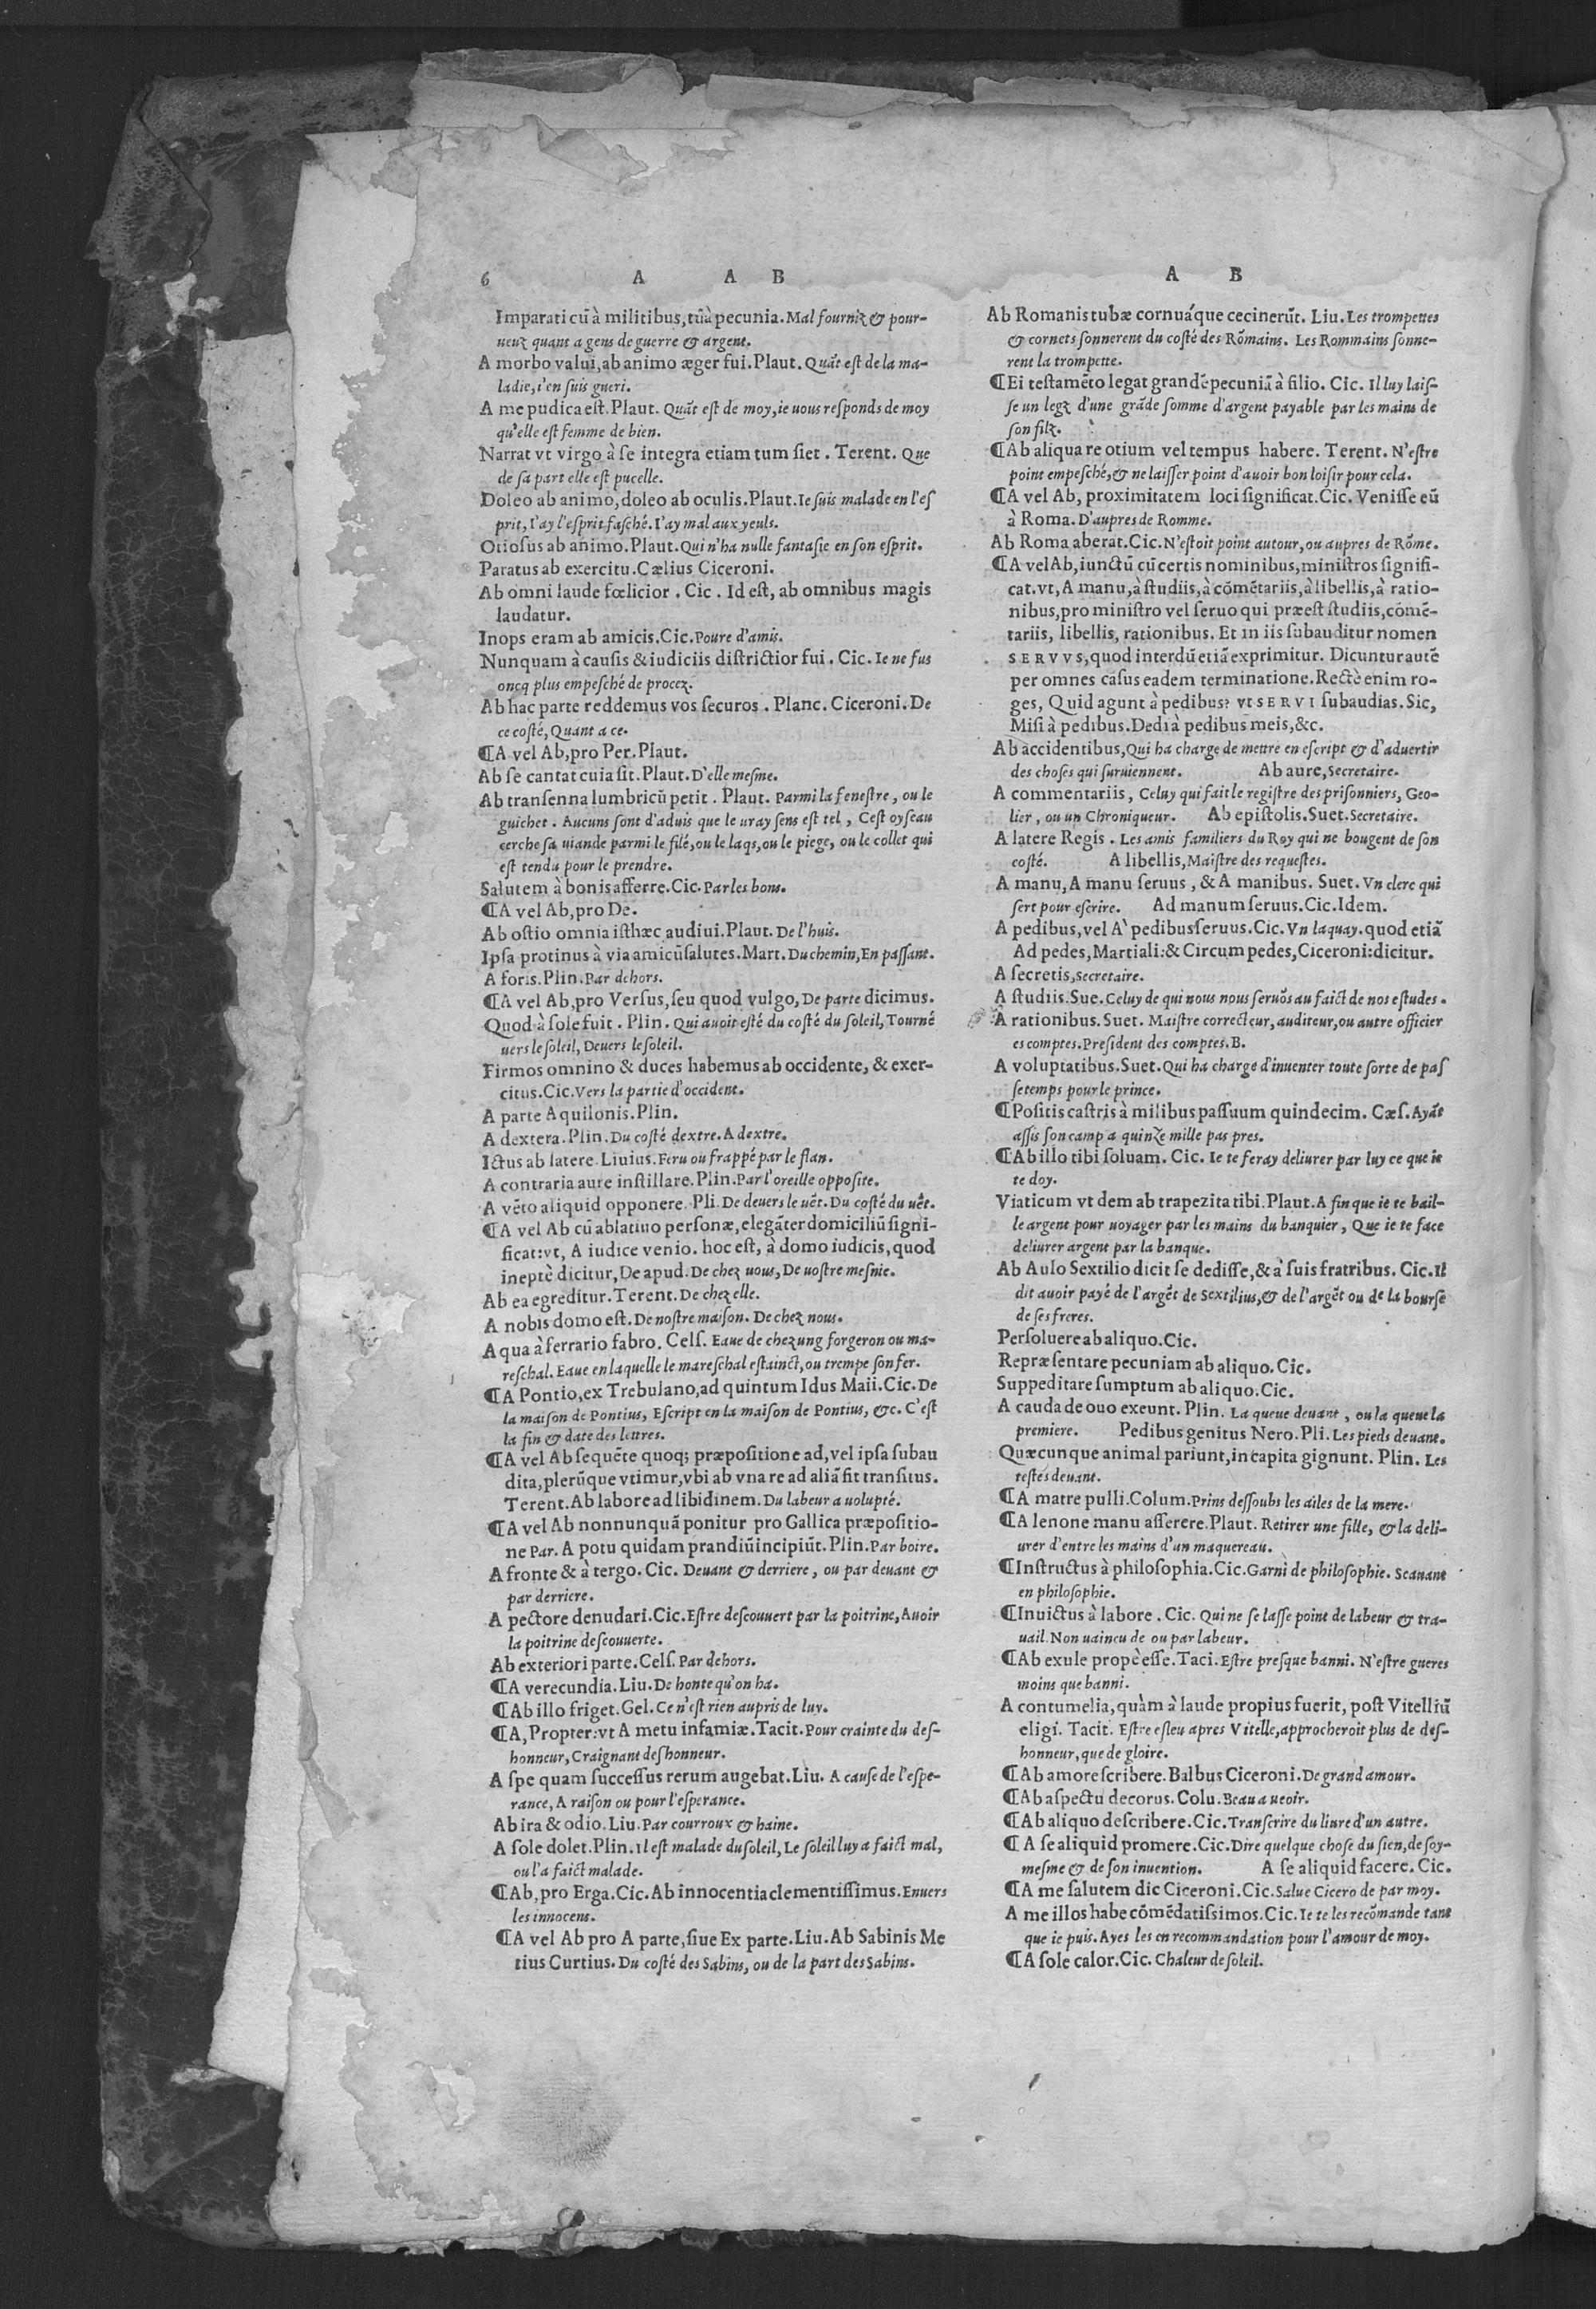 6 A A B
Imparati cũ à militibus, tũ à pecunia. Mal fourniz & pour-
ueuz quant a gens de guerre & argent.
A morbo valui, ab animo æger fui. Plaut. Quãt est de la ma-
ladie, i'en suis gueri.
A me pudica est. Plaut. Quãt est de moy, ie uous responds de moy
qu'elle est femme de bien.
Narrat vt virgo à se integra etiam tum siet. Terent. Que
de sa part elle est pucelle.
Doleo ab animo, doleo ab oculis. Plaut. Ie suis malade en l'es
prit, I'ay l'esprit fasché. I'ay mal aux yeuls.
Otiosus ab animo. Plaut. Qui n'ha nulle fantasie en son esprit.
Paratus ab exercitu. Cælius Ciceroni.
Ab omni laude fœlicior. Cic. Id est, ab omnibus magis
laudatur.
Inops eram ab amicis. Cic. Poure d'amis.
Nunquam à causis & iudiciis districtior fui. Cic. Ie ne fus
oncq plus empesché de procez.
Ab hac parte reddemus vos securos. Planc. Ciceroni. De
ce costé, Quant a ce.
¶A vel Ab, pro Per. Plaut.
Ab se cantat cuia sit. Plaut. D'elle mesme.
Ab transenna lumbricũ petit. Plaut. Parmi la fenestre, ou le
guichet. Aucuns sont d'aduis que le uray sens est tel, Cest oyseau
cerche sa uiande parmi le filé, ou le laqs, ou le piege, ou le collet qui
est tendu pour le prendre.
Salutem à bonis afferre. Cic. Par les bons.
¶A vel Ab, pro De.
Ab ostio omnia isthæc audiui. Plaut. De l'huis.
Ipsa protinus à via amicũ salutes. Mart. Du chemin, En passant.
A foris. Plin. Par dehors.
¶A vel Ab, pro Versus, seu quod vulgo, De parte dicimus.
Quod à sole fuit. Plin. Qui auoit esté du costé du soleil, Tourné
uers le soleil, Deuers le soleil.
Firmos omnino & duces habemus ab occidente, & exer-
citus. Cic. Vers la partie d'occident.
A parte Aquilonis. Plin.
A dextera. Plin. Du costé dextre. A dextre.
Ictus ab latere. Liuius. Feru ou frappé par le flan.
A contraria aure instillare. Plin. Par l'oreille opposite.
A vẽto aliquid opponere. Pli. De deuers le uẽt. Du costé du uẽt.
¶A vel Ab cũ ablatiuo personæ, elegãter domiciliũ signi-
ficat: vt, A iudice venio. hoc est, à domo iudicis, quod
ineptè dicitur, De apud. De chez uous, De uostre mesnie.
Ab ea egreditur. Terent. De chez elle.
A nobis domo est. De nostre maison. De chez nous.
Aqua à ferrario fabro. Cels. Eaue de chez ung forgeron ou ma-
reschal. Eaue en laquelle le mareschal estainct, ou trempe son fer.
¶A Pontio, ex Trebulano, ad quintum Idus Maii. Cic. De
la maison de Pontius, Escript en la maison de Pontius, &c. C'est
la fin & date des lettres.
¶A vel Ab sequẽte quoq; præpositione ad, vel ipsa subau
dita, plerũque vtimur, vbi ab vna re ad aliã fit transitus.
Terent. Ab labore ad libidinem. Du labeur a uolupté.
¶A vel Ab nonnunquã ponitur pro Gallica præpositio-
ne Par. A potu quidam prandiũ incipiũt. Plin. Par boire.
A fronte & à tergo. Cic. Deuant & derriere, ou par deuant &
par derriere.
A pectore denudari. Cic. Estre descouuert par la poitrine, Auoir
la poitrine descouuerte.
Ab exteriori parte. Cels. Par dehors.
¶A verecundia. Liu. De honte qu'on ha.
¶Ab illo friget. Gel. Ce n'est rien aupris de luy.
¶A, Propter: vt A metu infamiæ. Tacit. Pour crainte du des-
honneur, Craignant deshonneur.
A spe quam successus rerum augebat. Liu. A cause de l'espe-
rance, A raison ou pour l'esperance.
Ab ira & odio. Liu. Par courroux & haine.
A sole dolet. Plin. Il est malade du soleil, Le soleil luy a faict mal,
ou l'a faict malade.
¶Ab, pro Erga. Cic. Ab innocentia clementissimus. Enuers
les innocens.
¶A vel Ab pro A parte, siue Ex parte. Liu. Ab Sabinis Me
tius Curtius. Du costé des Sabins, ou de la part des Sabins.
A B
Ab Romanis tubæ cornuáque cecinerũt. Liu. Les trompettes
& cornets sonnerent du costé des Rõmains. Les Rommains sonne-
rent la trompette.
¶Ei testamẽto legat grandẽ pecuniã à filio. Cic. Il luy lais-
se un legz d'une grãde somme d'argent payable par les mains de
son filz.
¶Ab aliqua re otium vel tempus habere. Terent. N'estre
point empesché, & ne laisser point d'auoir bon loisir pour cela.
¶A vel Ab, proximitatem loci significat. Cic. Venisse eũ
à Roma. D'aupres de Romme.
Ab Roma aberat. Cic. N'estoit point autour, ou aupres de Rõme.
¶A vel Ab, iunctũ cũ certis nominibus, ministros signifi-
cat. vt, A manu, à studiis, à cõmẽtariis, à libellis, à ratio-
nibus, pro ministro vel seruo qui præest studiis, cõmẽ-
tariis, libellis, rationibus. Et in iis subauditur nomen
SERVVS, quod interdũ etiã exprimitur. Dicuntur autẽ
per omnes casus eadem terminatione. Rectè enim ro-
ges, Quid agunt à pedibus? vt SERVI subaudias. Sic,
Misi à pedibus. Dedi à pedibus meis, &c.
Ab accidentibus, Qui ha charge de mettre en escript & d'aduertir
des choses qui suruiennent. Ab aure, Secretaire.
A commentariis, Celuy qui fait le registre des prisonniers, Geo-
lier, ou un Chroniqueur. Ab epistolis. Suet. Secretaire.
A latere Regis. Les amis familiers du Roy qui ne bougent de son
costé. A libellis, Maistre des requestes.
A manu, A manu seruus, & A manibus. Suet. Vn clerc qui
sert pour escrire. Ad manum seruus. Cic. Idem.
A pedibus, vel A' pedibus seruus. Cic. Vn laquay. quod etiã
Ad pedes, Martiali: & Circum pedes, Ciceroni: dicitur.
A secretis, Secretaire.
A studiis. Sue. Celuy de qui nous nous seruõs au faict de nos estudes.
A rationibus. Suet. Maistre correcteur, auditeur, ou autre officier
es comptes. President des comptes. B.
A voluptatibus. Suet. Qui ha charge d'inuenter toute sorte de pas
setemps pour le prince.
¶Positis castris à milibus passuum quindecim. Cæs. Ayãt
assis son camp a quinze mille pas pres.
¶Ab illo tibi soluam. Cic. Ie te feray deliurer par luy ce que ie
te doy.
Viaticum vt dem ab trapezita tibi. Plaut. A fin que ie te bail-
le argent pour uoyager par les mains du banquier, Que ie te face
deliurer argent par la banque.
Ab Aulo Sextilio dicit se dedisse, & à suis fratribus. Cic. Il
dit auoir payé de l'argẽt de Sextilius, & de l'argẽt ou de la bourse
de ses freres.
Persoluere ab aliquo. Cic.
Repræsentare pecuniam ab aliquo. Cic.
Suppeditare sumptum ab aliquo. Cic.
A cauda de ouo exeunt. Plin. La queue deuant, ou la queue la
premiere. Pedibus genitus Nero. Pli. Les pieds deuant.
Quæcunque animal pariunt, in capita gignunt. Plin. Les
testes deuant.
¶A matre pulli. Colum. Prins dessoubs les ailes de la mere.
¶A lenone manu asserere. Plaut. Retirer une fille, & la deli-
urer d'entre les mains d'un maquereau.
¶Instructus à philosophia. Cic. Garni de philosophie. Scauant
en philosophie.
¶Inuictus à labore. Cic. Qui ne se lasse point de labeur & tra-
uail. Non uaincu de ou par labeur.
¶Ab exule propè esse. Taci. Estre presque banni. N'estre gueres
moins que banni.
A contumelia, quàm à laude propius fuerit, post Vitelliũ
eligi. Tacit. Estre esleu apres Vitelle, approcheroit plus de des-
honneur, que de gloire.
¶Ab amore scribere. Balbus Ciceroni. De grand amour.
¶Ab aspectu decorus. Colu. Beau a ueoir.
¶Ab aliquo describere. Cic. Transcrire du liure d'un autre.
¶A se aliquid promere. Cic. Dire quelque chose du sien, de soy-
mesme & de son inuention. A se aliquid facere. Cic.
¶A me salutem dic Ciceroni. Cic. Salue Cicero de par moy.
A me illos habe cõmẽdatissimos. Cic. Ie te les recõmande tant
que ie puis. Ayes les en recommandation pour l'amour de moy.
¶A sole calor. Cic. Chaleur de soleil.